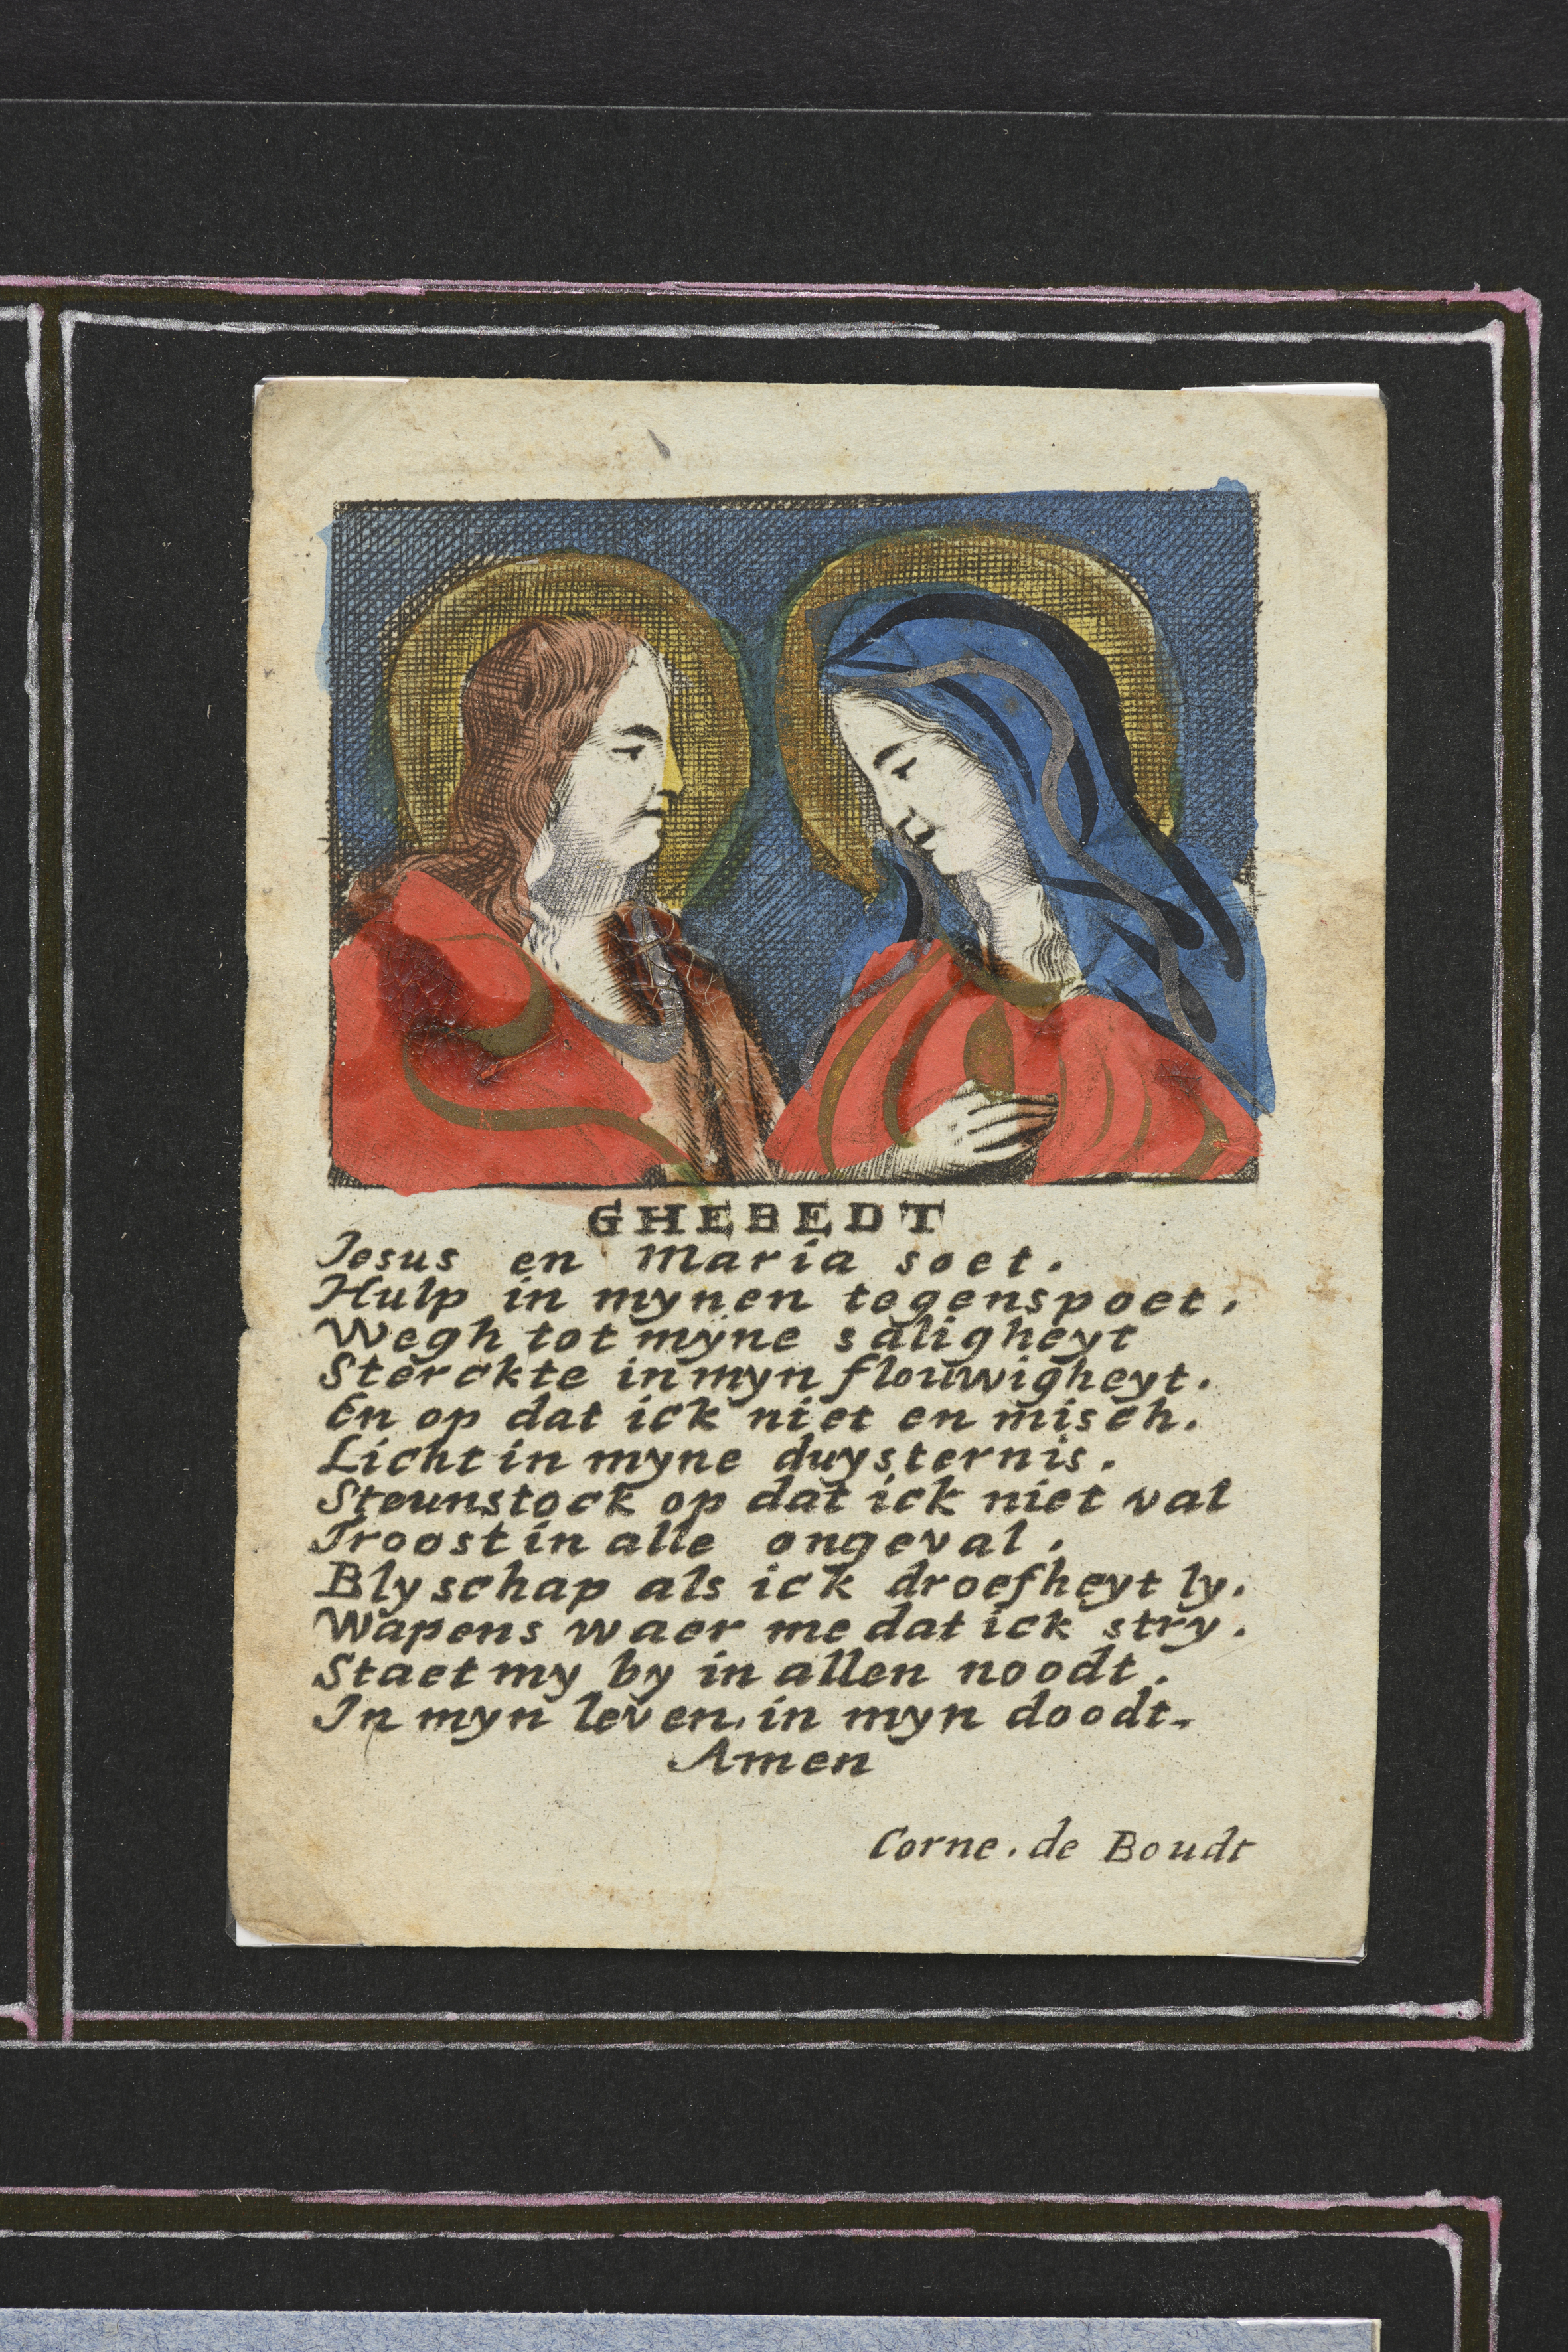 GHEBEDT
Jesus en Maria soet.
Hulp in mynen tegenspoet.
Wegh tot myne saligheyt
Sterckte in myn flouwigheyt.
En op dat ick niet en misch.
Licht in myne duysternis.
Steunstock op dat ick niet val
Troost in alle ongeval.
Blyschap als ick droefheyt ly.
Wapens waer me dat ick stry.
Staet my by in allen noodt.
In myn leven. in myn doodt.
Amen
Corne. de Boudt